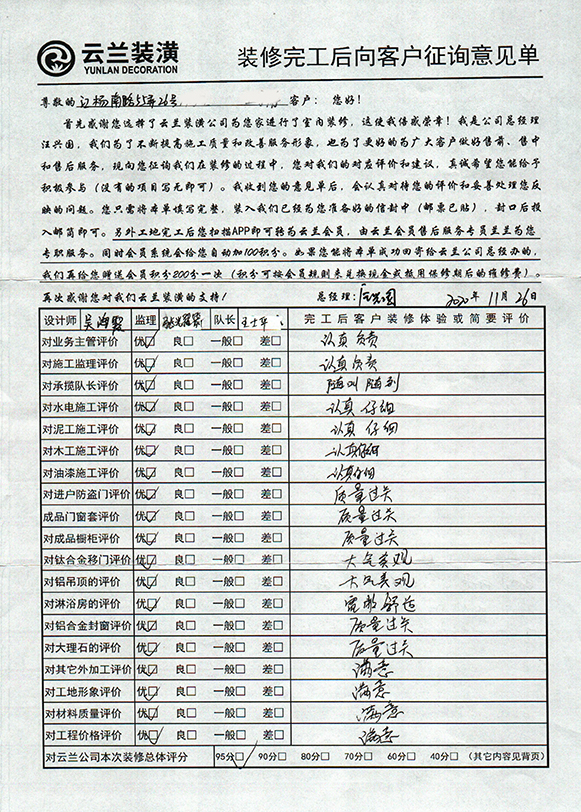 云兰装潢
YUNLAN DECORATION
装修完工后向客户征询意见单
尊敬的 杨南路 弄26号 客户：您好！
首先感谢您选择了云兰装潢公司为您家进行了室内装修，这使我倍感荣幸！我是公司总经理
汪兴国，我们为了不断提高施工质量和改善服务形象，也为了更好的为广大客户做好售前、售中
和售后服务，现向您征询我们在装修的过程中，您对我们的对应评价和建议，真诚希望您能给予
积极参与（没有的项目写无即可）。我收到您的意见单后，会认真对待您的评价和妥善处理您反
映的问题。您只需将本单填写完整，装入我们已经为您准备好的信封中（邮票已贴），封口后投
入邮筒即可。另外工地完工后您扫描APP即可转为云兰会员，由云兰会员售后服务专员兰兰为您
专职服务。同时会员系统会给您自动加100积分。如果您能将本单成功回寄给云兰公司总经办的，
我们再给您赠送会员积分200分一次（积分可按会员规则表兑换现金或抵用保修期后的维修费）。
再次感谢您对我们云兰装潢的支持！ 总经理： 2020年11月26日
设计师 吴 监理 队长 王士华 完工后客户装修体验或简要评价
对业务主管评价 优☑ 良□ 一般□ 差□ 认真负责
对施工监理评价 优☑ 良□ 一般□ 差□ 认真负责
对承揽队长评价 优☑ 良□ 一般□ 差□ 随叫随到
对水电施工评价 优☑ 良□ 一般□ 差□ 认真仔细
对泥工施工评价 优☑ 良□ 一般□ 差□ 认真仔细
对木工施工评价 优☑ 良□ 一般□ 差□ 认真仔细
对油漆施工评价 优☑ 良□ 一般□ 差□ 认真仔细
对进户防盗门评价 优☑ 良□ 一般□ 差□ 质量过关
成品门窗套评价 优☑ 良□ 一般□ 差□ 质量过关
对成品橱柜评价 优☑ 良□ 一般□ 差□ 质量过关
对钛合金移门评价 优☑ 良□ 一般□ 差□ 大气美观
对铝吊顶的评价 优☑ 良□ 一般□ 差□ 大气美观
对淋浴房的评价 优☑ 良□ 一般□ 差□ 宽敞舒适
对铝合金封窗评价 优☑ 良□ 一般□ 差□ 质量过关
对大理石的评价 优☑ 良□ 一般□ 差□ 质量过关
对其它外加工评价 优☑ 良□ 一般□ 差□ 满意
对工地形象评价 优☑ 良□ 一般□ 差□ 满意
对材料质量评价 优☑ 良□ 一般□ 差□ 满意
对工程价格评价 优☑ 良□ 一般□ 差□ 满意
对云兰公司本次装修总体评分 95分☑ 90分□ 80分□ 70分□ 60分□ 40分□ （其它内容见背页）